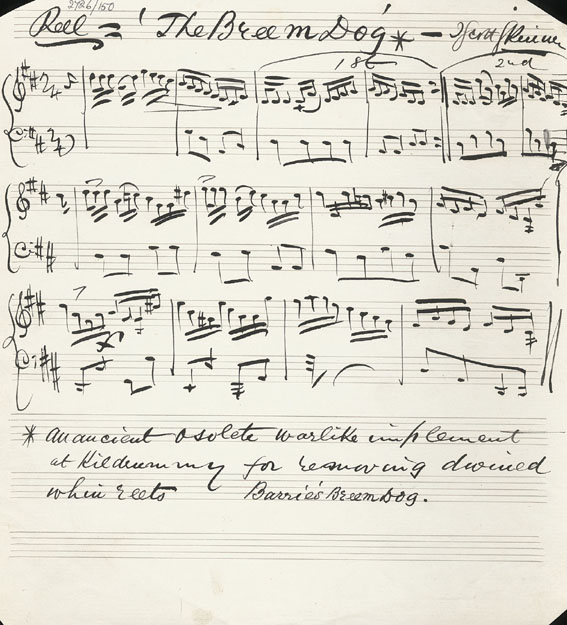 2786/150
Reel = 'The Breem Dog' * — J Scott Skinner
1st 2nd
* an ancient osolete warlike implement
at Kildrummy for removing dwined
whin reets Barrie's Breem Dog.